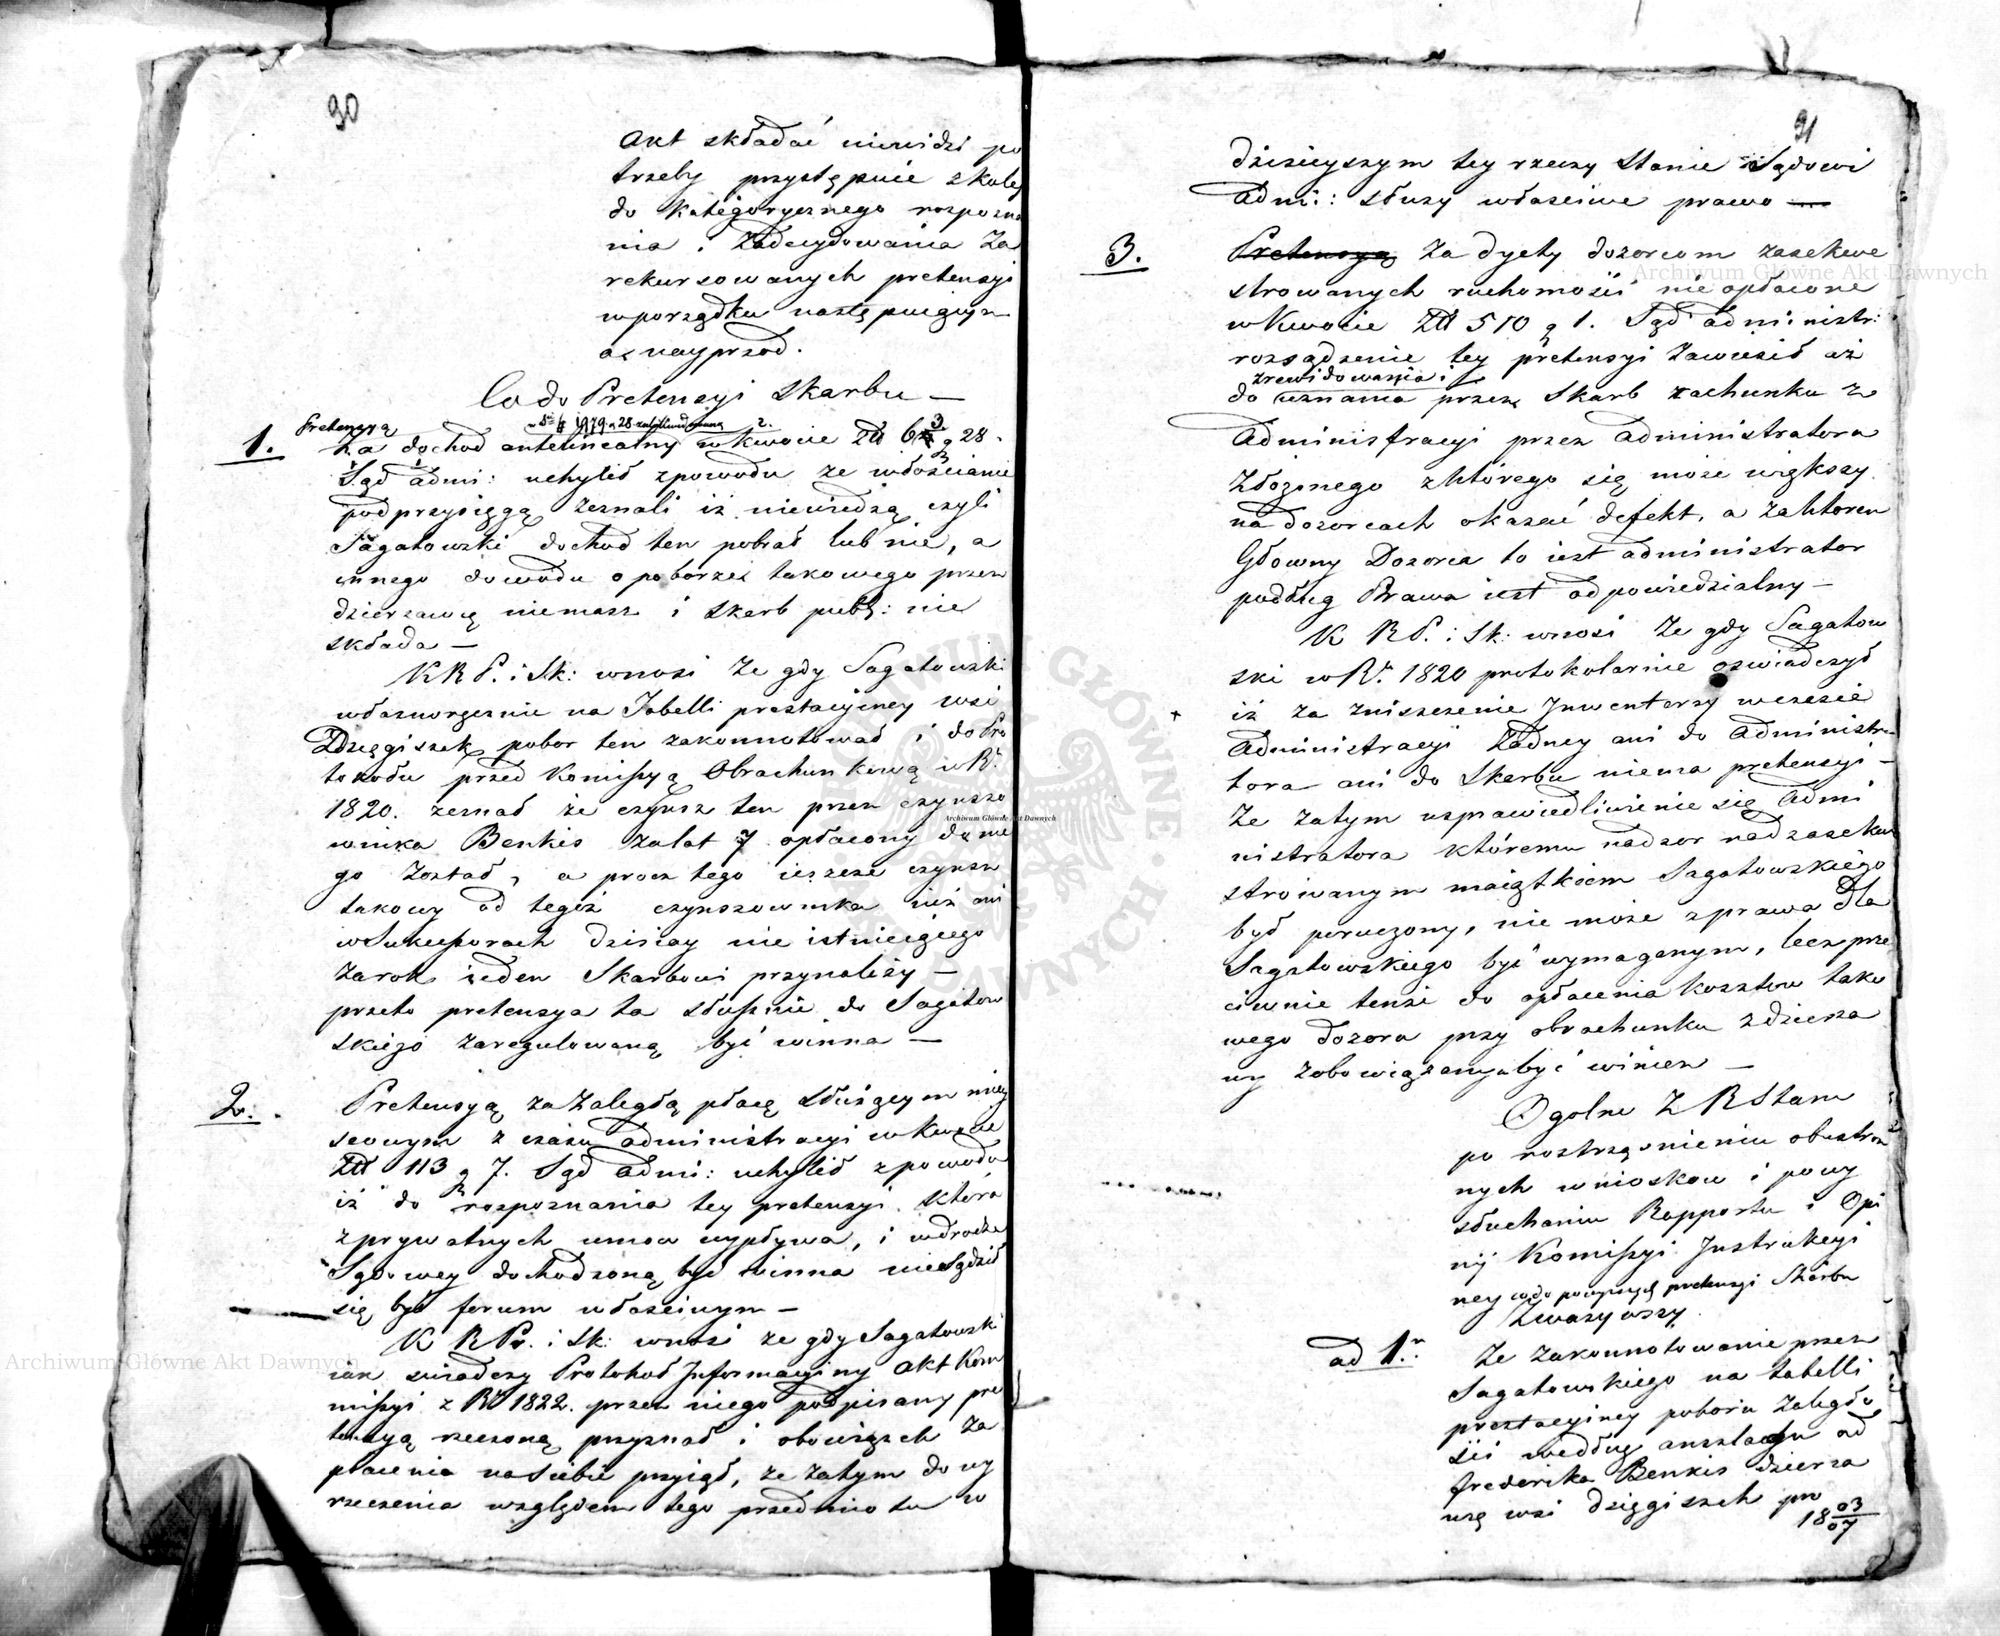 90
akt składać niewidzi po
trzeby przystępuie zkoley
do kategorycznego rozpozna
nia i zadecydowania za
rekursowanych pretensyi
wporządku następuiącym
a nayprzod.
Co do Pretensyi Skarbu —
Pretensyą
1. za dochod anteliniealny w kwocie Zł 63 g 28.
Sąd admi: uchylił zpowodu ze włościanie
podprzysięgą zeznali iż niewiedzą czyli
Sagatowski dochod ten pobrał lub nie, a
innego dowodu o poborze takowego przez
dzierzawcę niemasz i Skarb publ: nie
składa —
K R P. i Sk: wnosi Ze gdy Sagatowski
własnoręcznie na Tabelli prestacyiney wsi
Dzięgiszek pobor ten zakonnotował i do Pro
tokołu przed Kommissyą Obrachunkową w R.
1820. zeznał że czynsz ten przez czynszo
wnika Benkis za lat 7 opłacony dla nie
go został, a procz tego ieszcze czynsz
takowy od tegoż czynszownika iuż ani
w Sukcessorach dzisiay nie istnieiącego
za rok ieden Skarbowi przynależy —
przeto pretensya ta słusznie do Sagatow
skiego zaregulowaną być winna —
2. Pretensyą za zaległą płacę służącym miey
scowym z czasu administracyi w kwocie
Zł 113 g 7. Sąd admi: uchylił zpowodu
iż do rozpoznania tey pretensyi która
z prywatnych umow wypływa, i w drodze
Sądowey dochodzoną być winna niesądził
się być forum właściwym —
K R P. i Sk: wnosi ze gdy Sagatowski
iak świadczy Protokoł Informacyiny akt Kom
missyi z R 1822. przez niego podpisany pre
tensyą rzeczoną przyznał i obowiązek za
płacenia na siebie przyiął, ze zatym do wy
rzeczenia względem tego przedmiotu w
91
dzisieyszym tey rzeczy Stanie Sądowi
admi: służy właściwe prawo —
3. Pretensyą za dyety dozorcom zasekwe
strowanych ruchomości nieopłacone
w kwocie Zł 510 g 1. Sąd administr:
rozsądzenie tey pretensyi zawiesił aż
zrewidowania i
do uznania przez Skarb rachunku z
administracyi przez administratora
złożonego z którego się może większy
na dozorcach okazać defekt, a za ktoren
Głowny Dozorca to iest administrator
podług Prawa iest odpowiedzialny —
K R P. i Sk: wnosi Ze gdy Sagatow
ski w R. 1820 protokolarnie oswiadczył
iż za zniszczenie Inwentarzy w czasie
administracyi żadney ani do administra
tora ani do Skarbu niema pretensyi —
Ze zatym usprawiedliwienie się admi
nistratora któremu nadzor nad zasekwe
strowanym maiątkiem Sagatowskiego
był poruczony, nie może z prawa dla
Sagatowskiego być wymaganym, lecz prze
ciwnie tenże do opłacenia kosztow tako
wego dozoru przy obrachunku z dzierza
wy zobowiązanym być winien —
Ogolne Z R Stanu
po roztrząśnieniu obustron
nych wnioskow i powy
słuchaniu Rapportu i Opi
nij Kommissyi Instrukcyi
ney co do powyższych pretensyi Skarbu
Zważywszy.
ad 1. Ze zakonnotowanie przez
Sagatowskiego na tabelli
prestacyiney poboru zaległo
ści według anszlagu od
frederika Benkis dzierza
wcę wsi Dzięgiszek pro
18 03/07